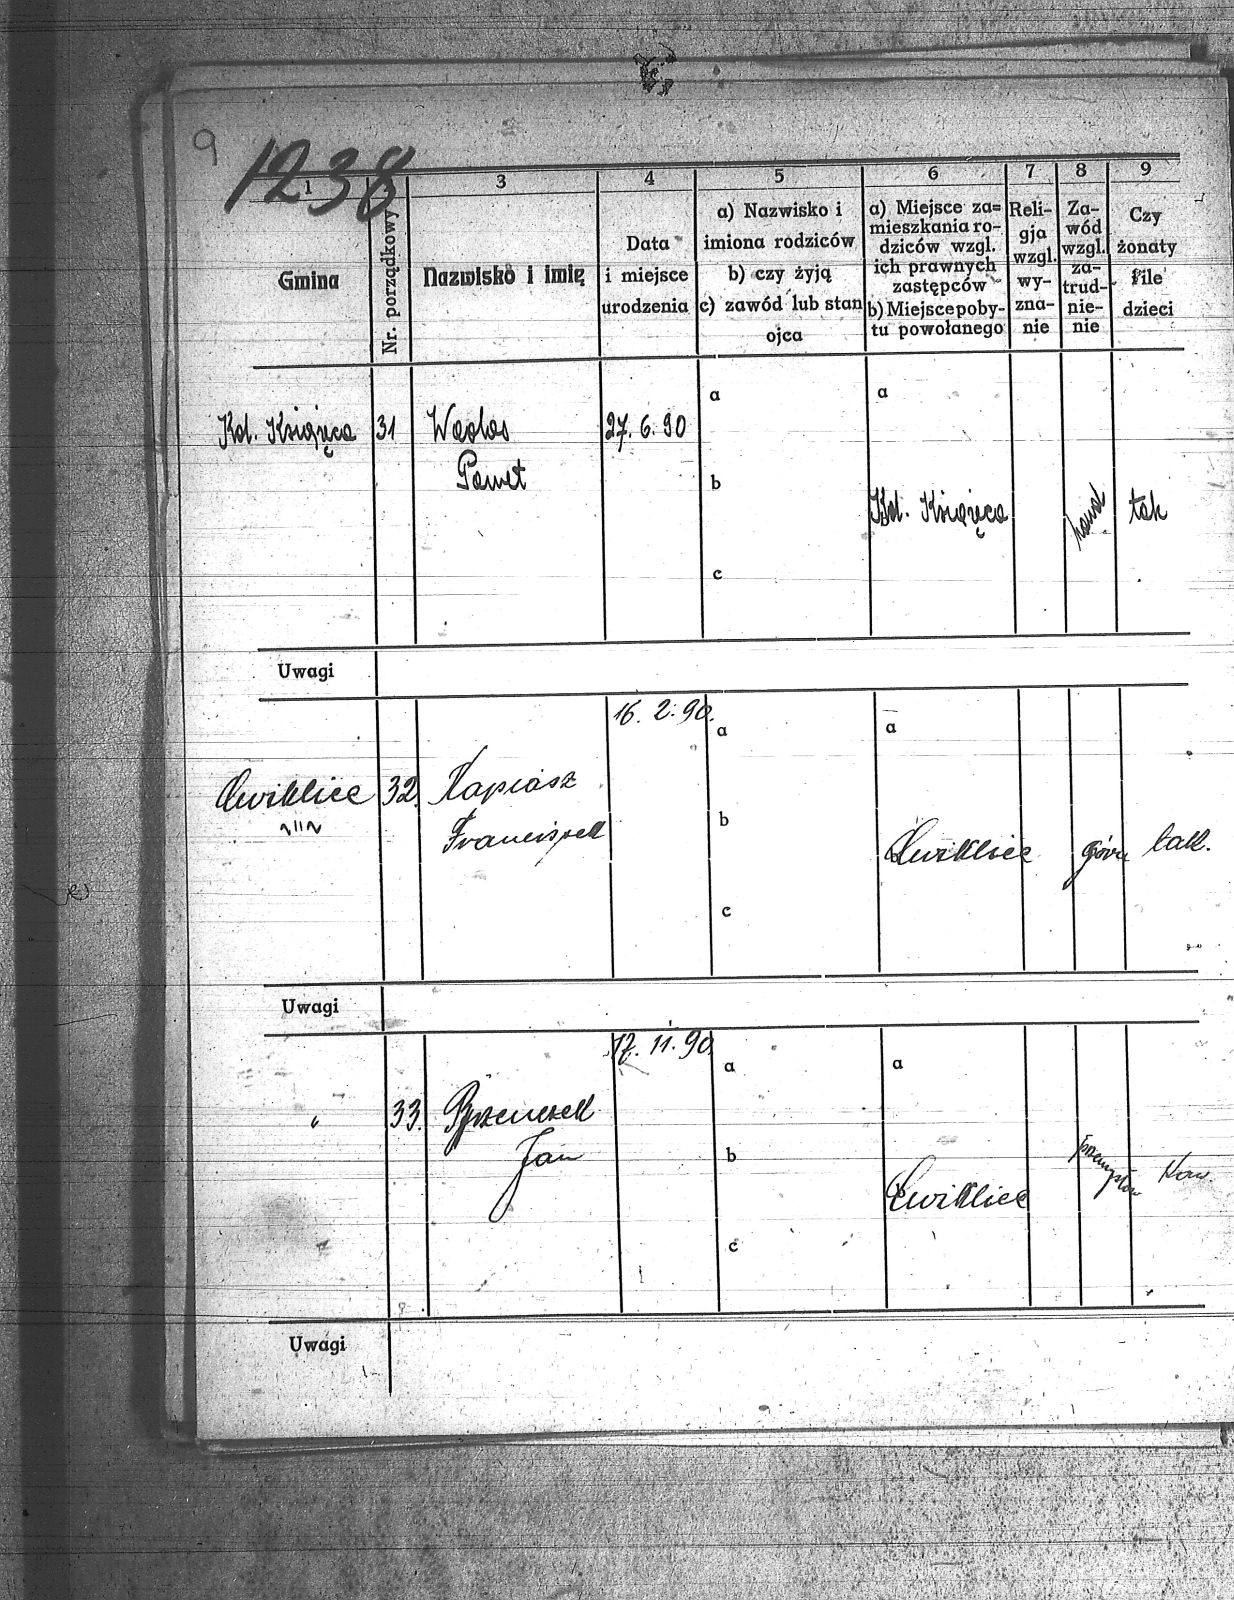 9
1238
1
3
4
5
6
7
8
9
Gmina
Nr. porządkowy
Nazwisko i imię
Data
i miejsce
urodzenia
a) Nazwisko i
imiona rodziców
b) czy żyją
c) zawód lub stan
ojca
a) Miejsce za=
mieszkania ro-
dziców wzgl.
ich prawnych
zastępców
b) Miejsce poby-
tu powołanego
Reli-
gja
wzgl.
wy-
zna-
nie
Za-
wód
wzgl.
za-
trud-
nie-
nie
Czy
żonaty
ile
dzieci
Kol. Książęca
31
Paweł
27. 6. 90
a
b
c
a
Kol. Książęca
tak
Uwagi
Ćwiklice
32.
Kapiasz
Franciszek
16. 2. 90.
a
b
c
a
Ćwiklice
tak.
Uwagi
"
33.
Jan
17. 11. 90.
a
b
c
a
Ćwiklice
Uwagi